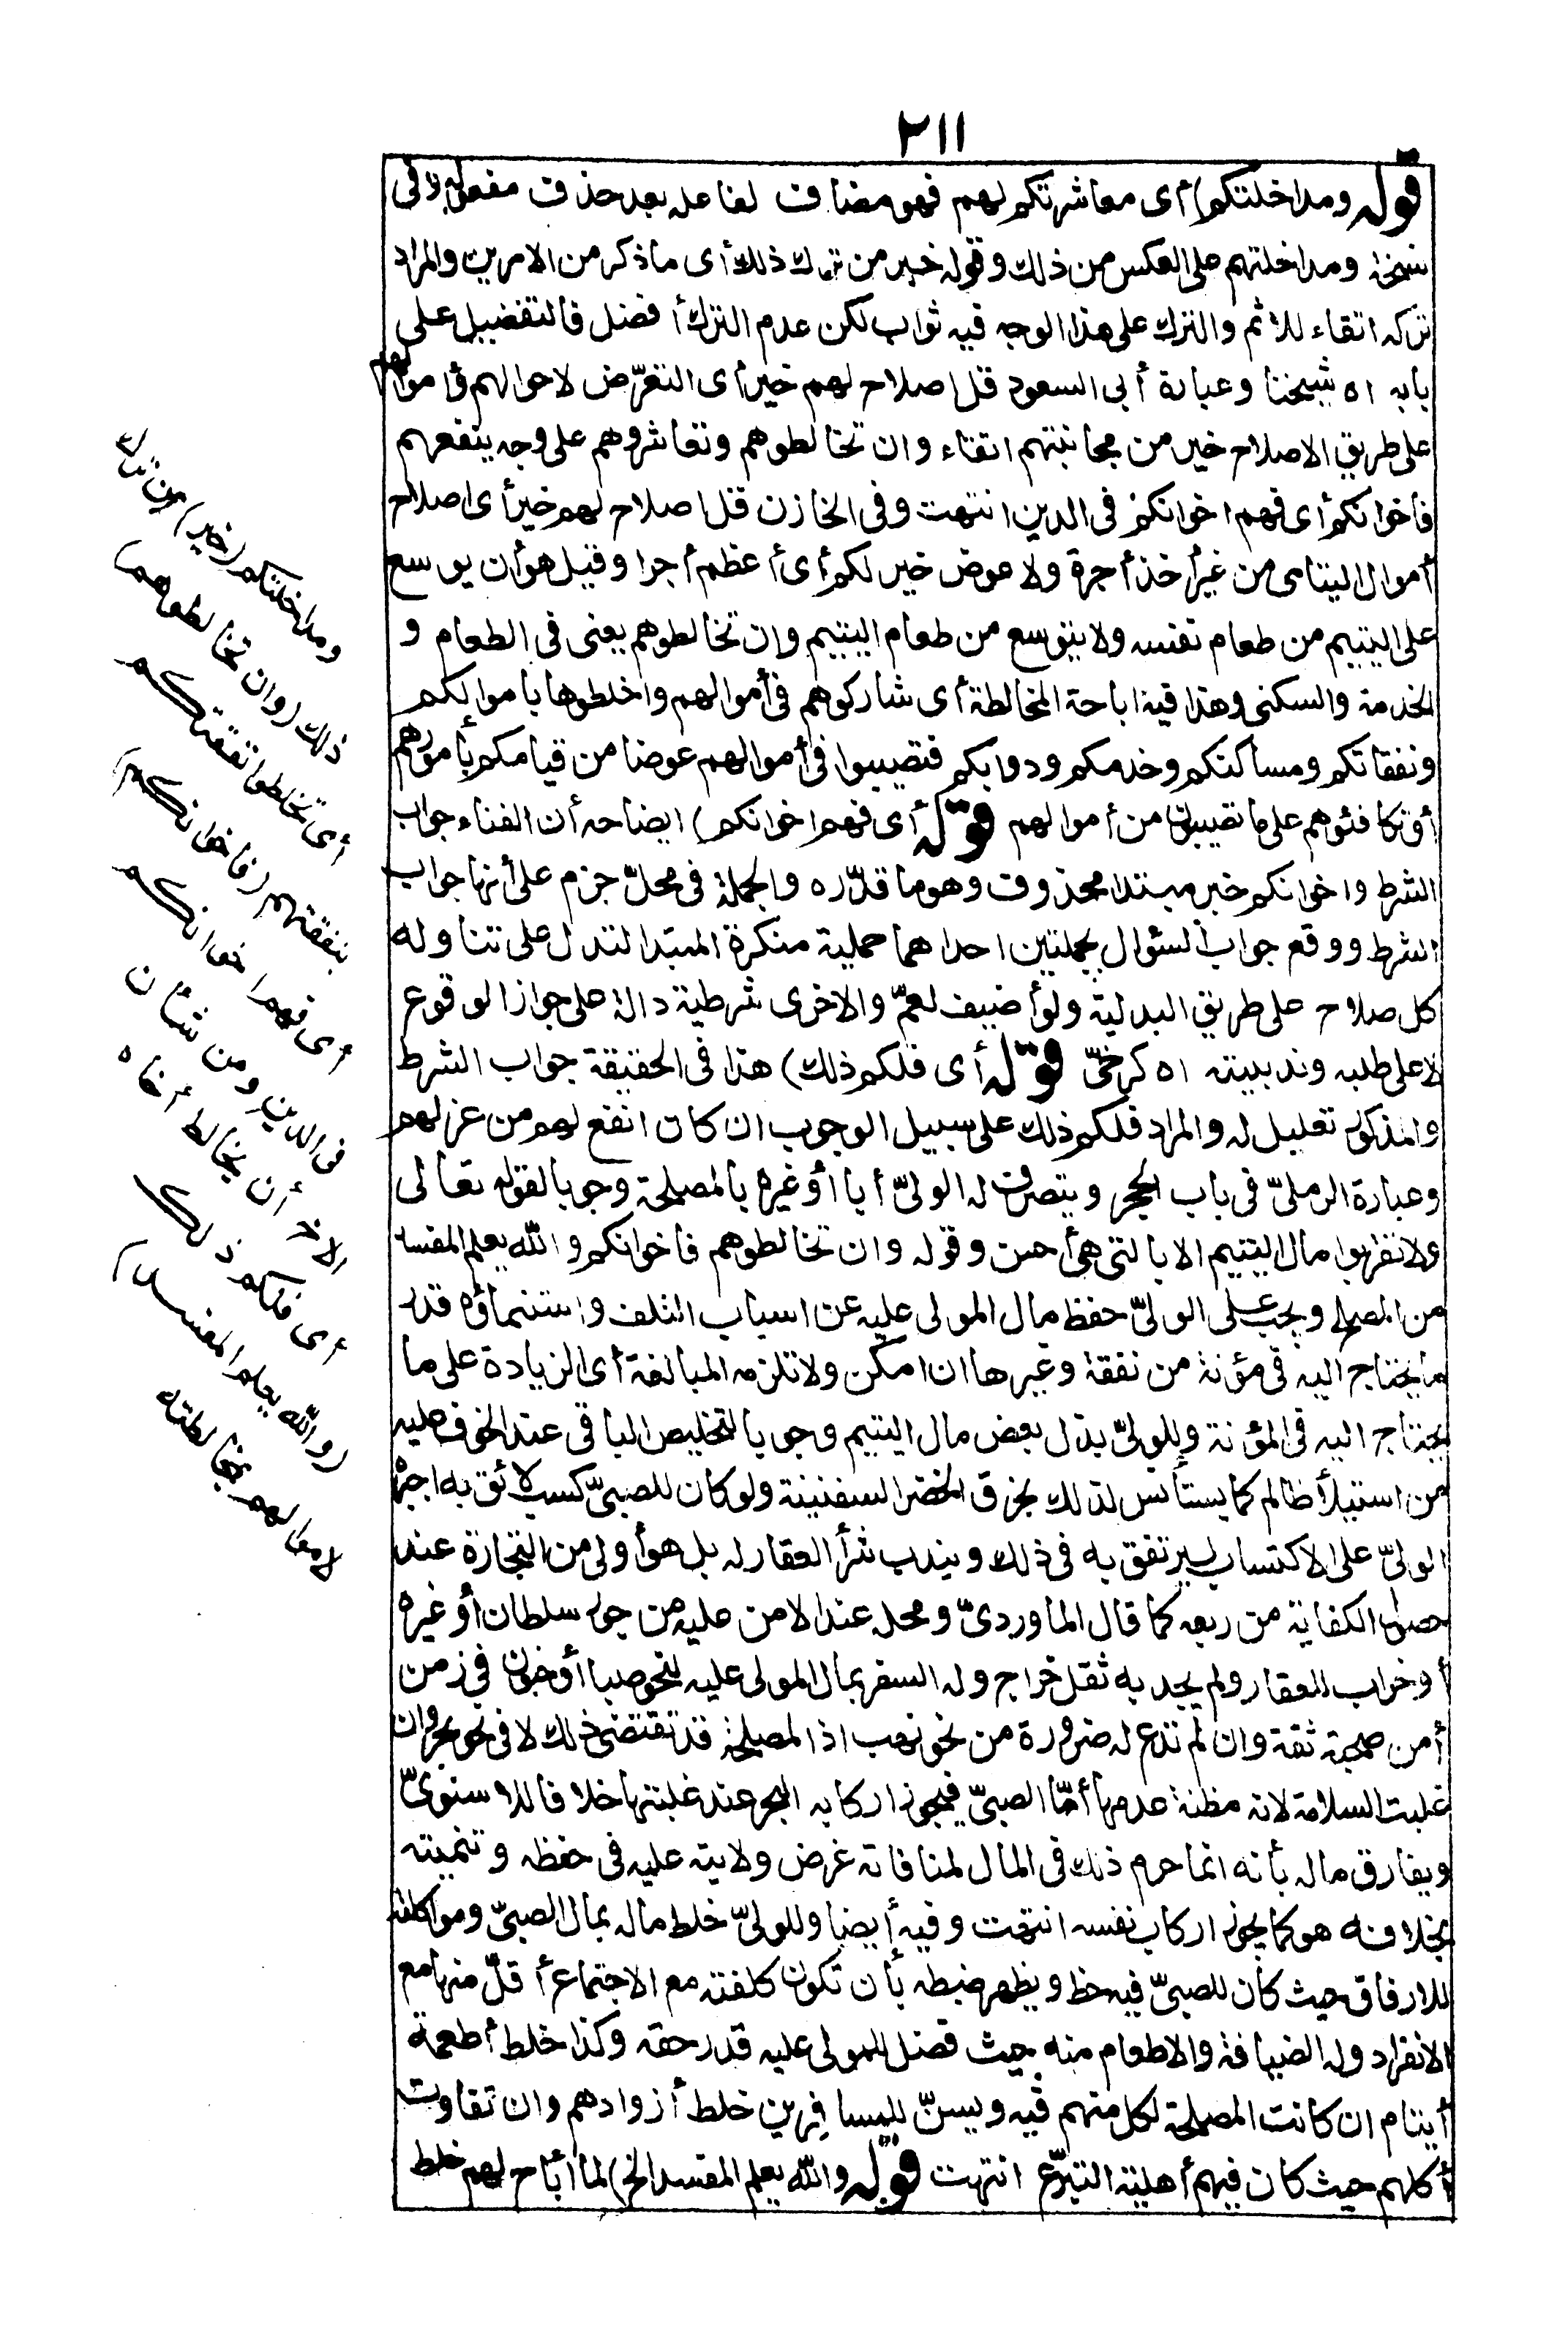 ٢١١
قوله ومداخلتكم) أى معاشرتكم لهم فهو مضاف لفاعله بعد حذف مفعوله وفى
نسخة ومداخلتهم على العكس من ذلك وقوله خير من ترك ذلك أى ما ذكر من الامرين والمراد
تركه اتقاء للاثم والترك على هذا الوجه فيه ثواب لكن عدم الترك أفضل فالتفضيل على
بابه اه شيخنا وعبارة أبى السعود قل اصلاح لهم خير أى التعرّض لاحوالهم وأموالهم
على طريق الاصلاح خير من مجانبتهم اتقاء وان تخالطوهم وتعاشروهم على وجه ينفعهم
فاخوانكم أى فهم اخوانكم فى الدين انتهت وفى الخازن قل اصلاح لهم خير أى اصلاح
أموال اليتامى من غير أخذ أجرة ولا عوض خير لكم أى أعظم أجرا وقيل هو أن يوسع
على اليتيم من طعام نفسه ولا يتوسع من طعام اليتيم وان تخالطوهم يعنى فى الطعام و
الخدمة والسكنى وهذا فيه اباحة المخالطة أى شاركوهم فى أموالهم واخلطوها باموالكم
ونفقاتكم ومساكنكم وخدمكم ودوابكم فتصيبوا فى أموالهم عوضا من قيامكم بأمورهم
أو تكافئوهم على ما تصيبون من أموالهم قوله أى فهم اخوانكم) ايضاحه أن الفاء جواب
الشرط واخوانكم خبر مبتدا محذوف وهو ما قدّره والجملة فى محلّ جزم على أنها جواب
الشرط ووقع جواب السؤال بجملتين احداهما حملية منكرة المبتدا لتدل على تناوله
كل صلاح على طريق البدلية ولو أضيف لعمّ والاخرى شرطية دالة على جواز الوقوع
لا على طلبه وندبيته اه كرخىّ قوله أى فلكم ذلك) هذا فى الحقيقة جواب الشرط
والمذكور تعليل له والمراد فلكم ذلك على سبيل الوجوب ان كان انفع لهم من عزلهم
وعبارة الرملىّ فى باب الحجر ويتصرف له الولىّ أبا أو غيره بالمصلحة وجوبا لقوله تعالى
ولا تقربوا مال اليتيم الا بالتى هى أحسن وقوله وان تخالطوهم فاخوانكم والله يعلم المفسد
من المصلح ويجب على الولىّ حفظ مال المولى عليه عن اسباب التلف واستنماؤه قدر
ما يحتاج اليه فى مؤنه من نفقة وغيرها ان امكن ولا تلزمه المبالغة أى الزيادة على ما
يحتاج اليه فى المؤنة وللولىّ بذل بعض مال اليتيم وجوبا لتخليص الباقى عند الخوف عليه
من استيلاء ظالم كما يستأنس لذلك بخرق الخضر السفينة ولو كان للصبىّ كسب لائق به اجبره
الولىّ على الاكتساب ليرتفق به فى ذلك ويندب شرأ العقار له بل هو أولى من التجارة عند
حصول الكفاية من ريعه كما قال الماوردىّ ومحله عند الامن عليه من جور سلطان أو غيره
أو خراب للعقار ولم يجد به ثقل خراج وله السفر بمال المولى عليه لنحو صبا أو جنون فى زمن
أمن صحبة ثقة وان لم تدع له ضرورة من نحو نهب اذ المصلحة قد تقتضى ذلك لا فى نحو بحر وان
غلبت السلامة لانه مظنة عدمها أمّا الصبىّ فيجوز اركابه البحر عند غلبتها خلافا للاسنوىّ
ويفارق ماله بأنه انما حرم ذلك فى المال لمنافاته غرض ولايته عليه فى حفظه وتنميته
بخلافه هو كما يجوز اركاب نفسه انتهت وفيه أيضا وللولىّ خلط ماله بمال الصبىّ ومواكلته
للارفاق حيث كان للصبىّ فيه حظ ويظهر ضبطه بأن تكون كلفته مع الاجتماع أقلّ منها مع
الانفراد وله الضيافة والاطعام منه حيث فضل للمولى عليه قدر حقه وكذا خلط أطعمة
أيتام ان كانت المصلحة لكل منهم فيه ويسنّ للمسافرين خلط أزوادهم وان تفاوت
أكلهم حيث كان فيهم أهلية التبرّع انتهت قوله والله يعلم المفسد الخ) لما أباح لهم خلط
ومداخلتكم (خير) من ترك
ذلك (وان تخالطوهم)
أى تخلطوا نفقتكم
بنفقتهم (فاخوانكم)
أى فهم اخوانكم
فى الدين ومن شأن
الاخ أن يخالط أخاه
أى فلكم ذلك
(والله يعلم المفسد)
لاموالهم بمخالطته